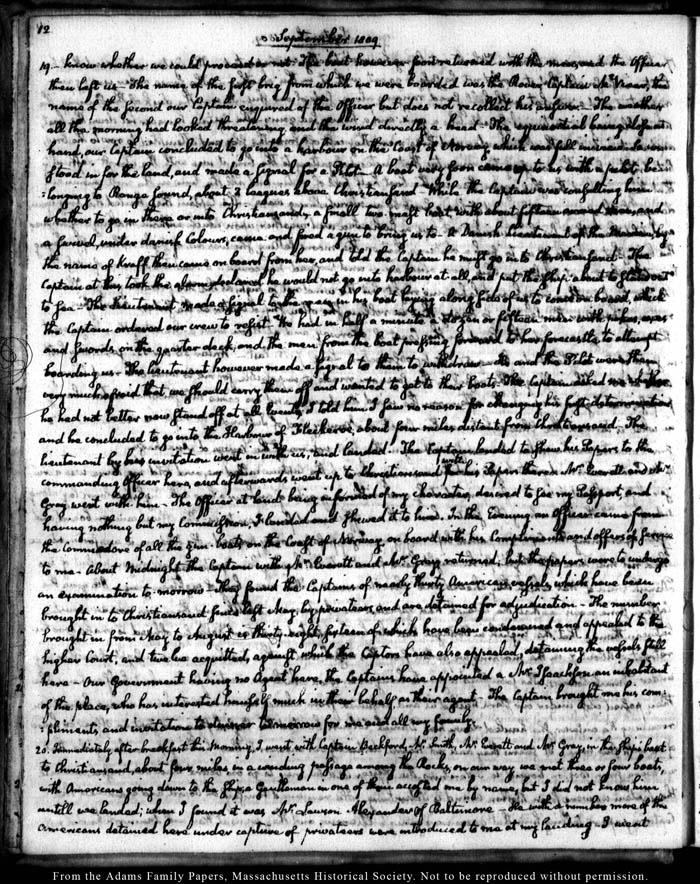 12
September 1809
19.- know whether we could proceed or not. The boat however soon returned with the men, and the Officer
then left us - The name of the first brig from which we were boarded was the Rover Captain McVicar, the
name of the second our Captain enquired of the Officer but does not recollect his answer - The weather
all the morning had looked threatening and the wind directly a head - The equinoctial being close at
hand, our Captain concluded to go into a harbour on the Coast of Norway which was full in view.
stood in for the land, and made a signal for a Pilot. A boat very soon came up to us with a pilot be-
:longing to Ronge sound, about 2 leagues above Christiansand - While the Captain was consulting him
whether to go in there or into Christiansand, a small two mast boat, with about fifteen armed men, and
a swivel, under danish Colours, came and fired a gun to bring us to - A Danish Lieutenant of the Marines, by
the name of Kraff then came on board from her, and told the Captain he must go into Christiansand - The
Captain at this took the alarm, declared he would not go into harbour at all, and put the Ship about to stand out
to sea - The Lieutenant made a signal to the men in his boat laying along side of us to come on board, which
the Captain ordered our crew to resist. We had in half a minute a dozen or fifteen men with pikes, axes
and swords, on the quarter deck, and the men from the boat pressing forward to her forecastle, to attempt
boarding us - The lieutenant however made a signal to them to withdraw - He and the Pilot were then
very much afraid that we should carry them off and wanted to get to their boats. The Captain asked me whether
he had not better now stand off at all events, I told him I saw no reason for changing his first determination
and he concluded to go into the Harbour of Fleckeröe, about four miles distant from Christiansand. The
lieutenant by his invitation went in with us, and landed. The Captain landed to shew his Papers to the
commanding Officer here, and afterwards went up to Christiansand with his Papers there - Mr. Everett and Mr.
Gray went with him - The Officer at land being informed of my character, desired to see my Passport, and
having nothing but my Commission, I landed and shewed it to him. In the Evening an Officer came from
the Commodore of all the gun-boats on the Coast of Norway, on board with his Compliments and offers of service
to me - About Midnight the Captain with Mr. Everett and Mr. Gray returned, but the papers were to undergo
an examination to-morrow - They found the Captains of nearly thirty American vessels which have been
brought in to Christiansand since last May, by privateers, and are detained for adjudication - The number
brought in from May to August is thirty-eight, sixteen of which have been condemned and appealed to the
higher Court, and twelve acquitted, against which the Captors have also appealed, detaining the vessels still
here - Our Government having no Agent here, the Captains have appointed a Mr. Isaachsen an inhabitant
of the place, who has interested himself much in their behalf as their agent - The Captain brought me his com-
:pliments and invitation to dinner to-morrow for me and all my family.
20. Immediately after breakfast this Morning, I went with Captain Beckford, Mr. Smith, Mr. Everett and Mr. Gray, in the Ship's boat
to Christiansand, about four miles in a winding passage among the Rocks, on our way we met three or four boats,
with Americans going down to the ship; a Gentleman in one of them accosted me by name, but I did not know him
untill we landed; when I found it was Mr. Lawson Alexander of Baltimore - He with a number more of the
Americans detained here under capture of privateers were introduced to me at my landing - I went
From the Adams Family Papers, Massachusetts Historical Society. Not to be reproduced without permission.